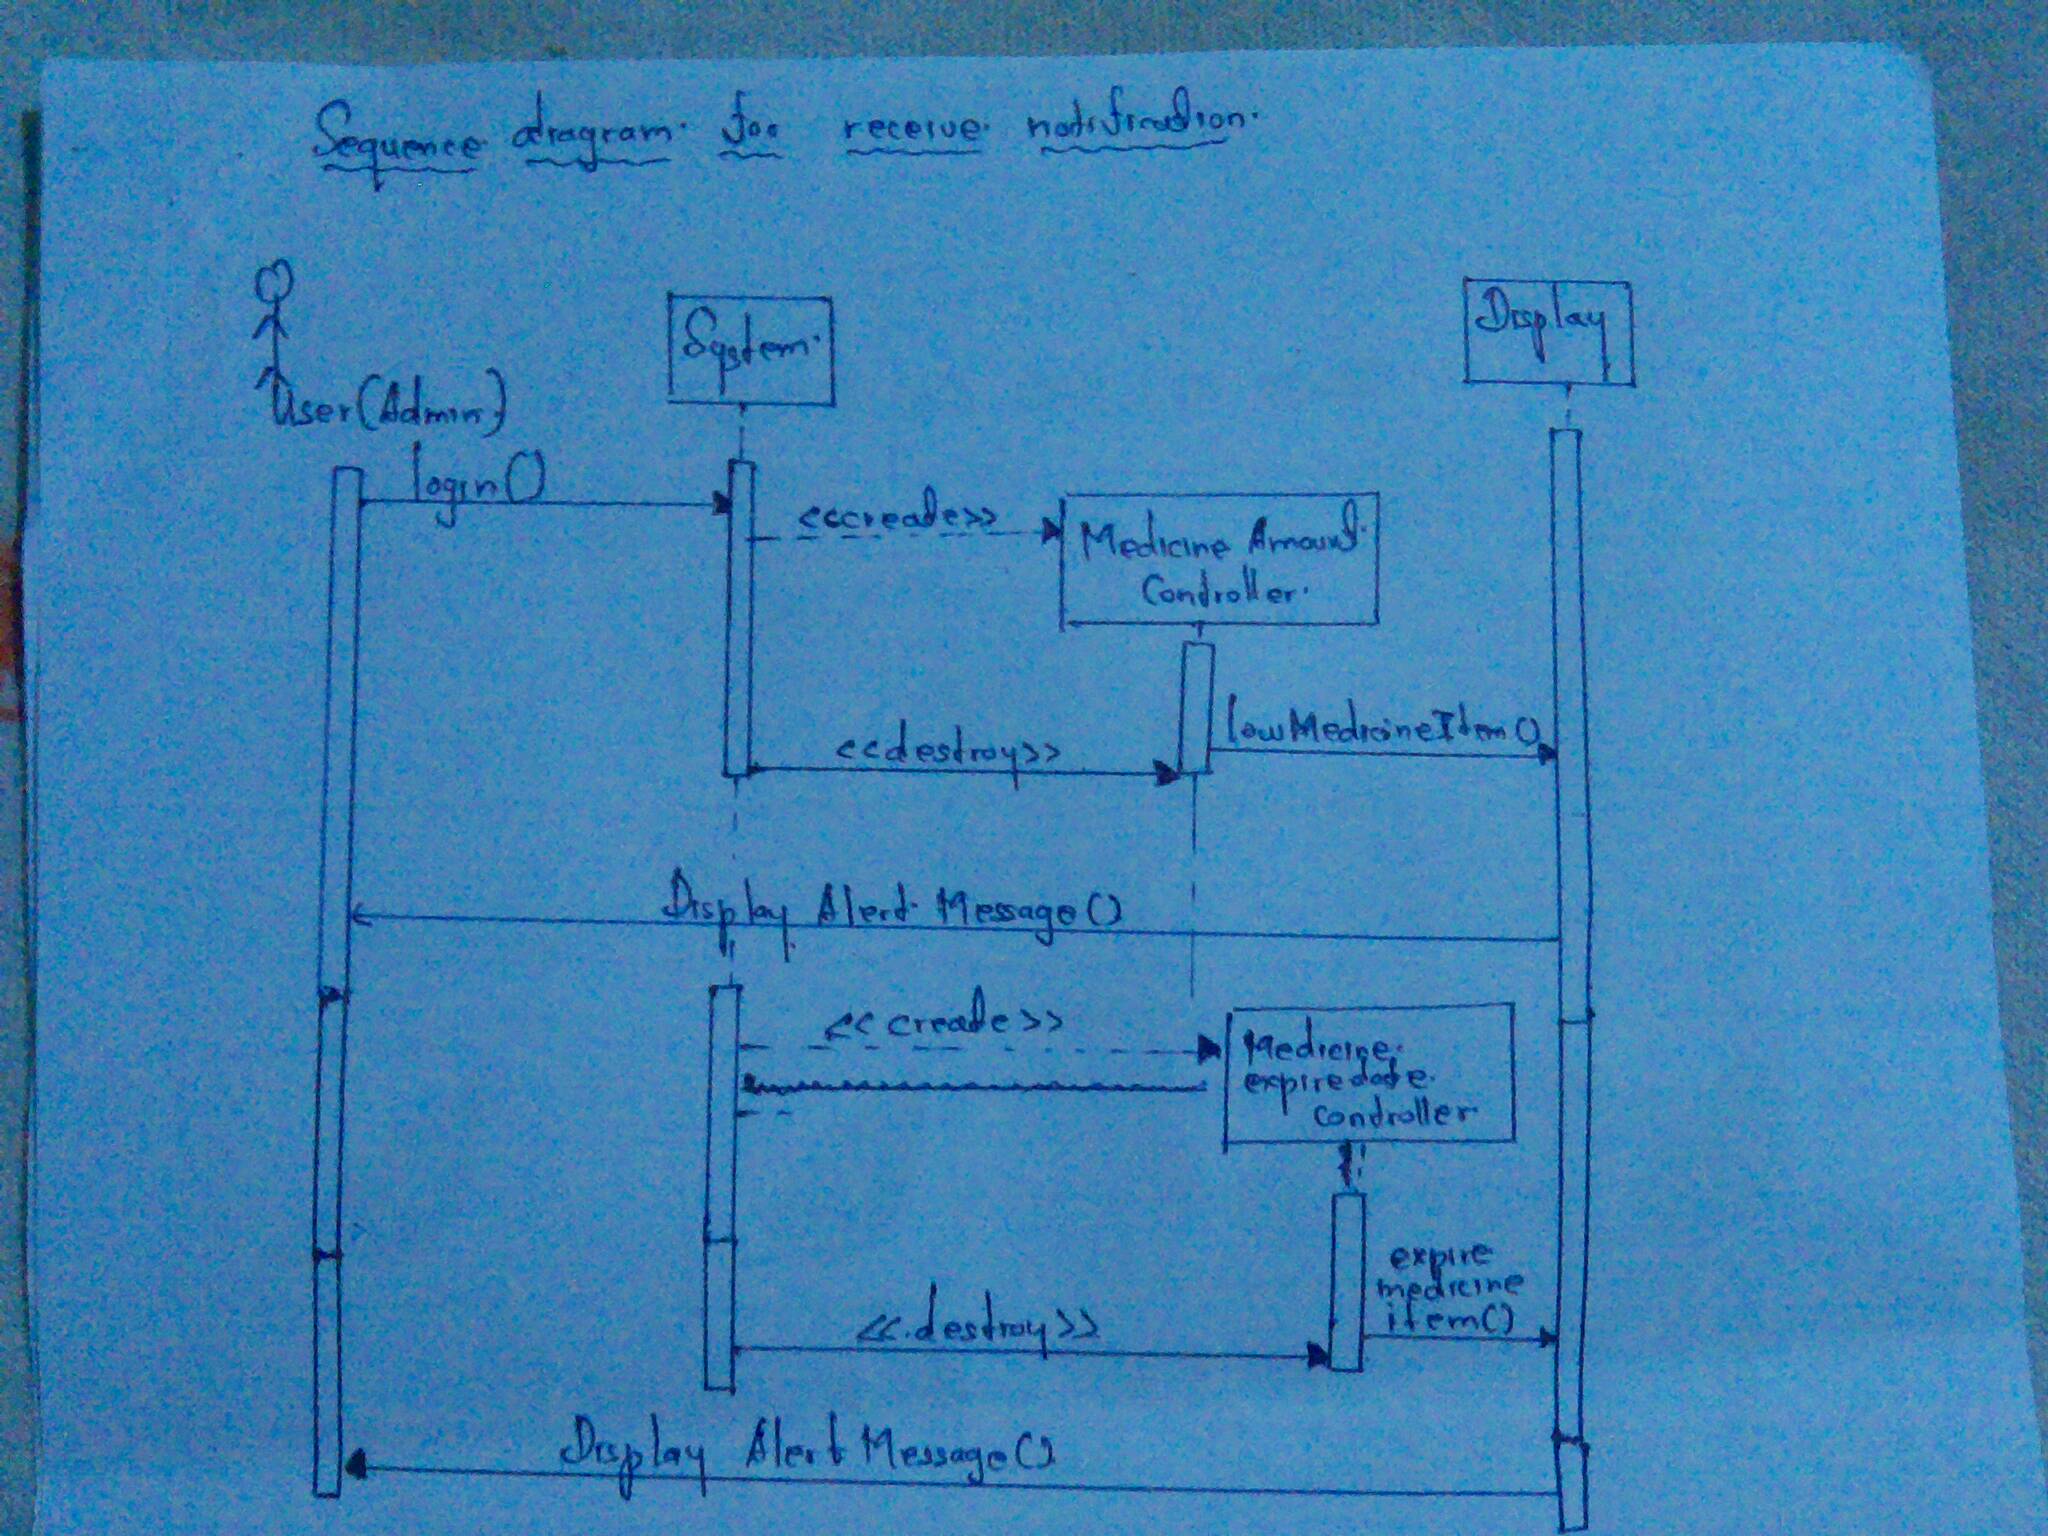 Sequence diagram for receive notification.
System.
Display
User(Admin)
login()
<<create>>
Medicine Amount
Controller.
lowMedicineItem()
<<destroy>>
Display Alert Message()
<<create>>
Medicine
expiredate
controller
expire
medicine
item()
<<destroy>>
Display Alert Message()